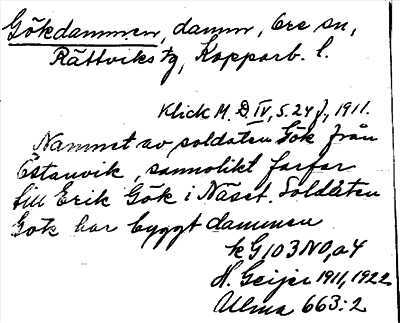 Gökdammen, damm, Ore sn,
Rättviks tg, Kopparb. l.
Klick M. D. IV, s. 24 f, 1911.
Namnet av soldaten Gök från
Östanvik, sannolikt farfar
till Erik Gök i Näset. Soldaten
Gök har byggt dammen
kG 103 NO, a 4
H. Geijer 1911, 1922
Ulma 663:2